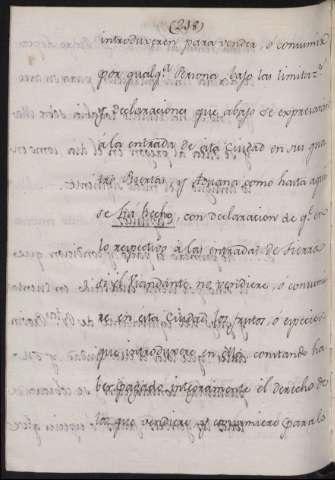 (218)
introduxeren para vender, ó consumir
por qualq.ª Persona, baxo las limitaz.s
y declaraciones que abajo se expresaran
á la entrada de esta Ciudad en sus qua
tro Puertas, y Aduana como hasta aqui
se há hecho, con declaracion de q.e en
lo respectivo a las entradas de tierra
si el tragante no vendiere, ó consumie
re en esta Ciudad los frutos, ó especies
que introduxere en ella, constando ha
ber pagado integramente el derecho de
los que vendiere y consumiere para lo